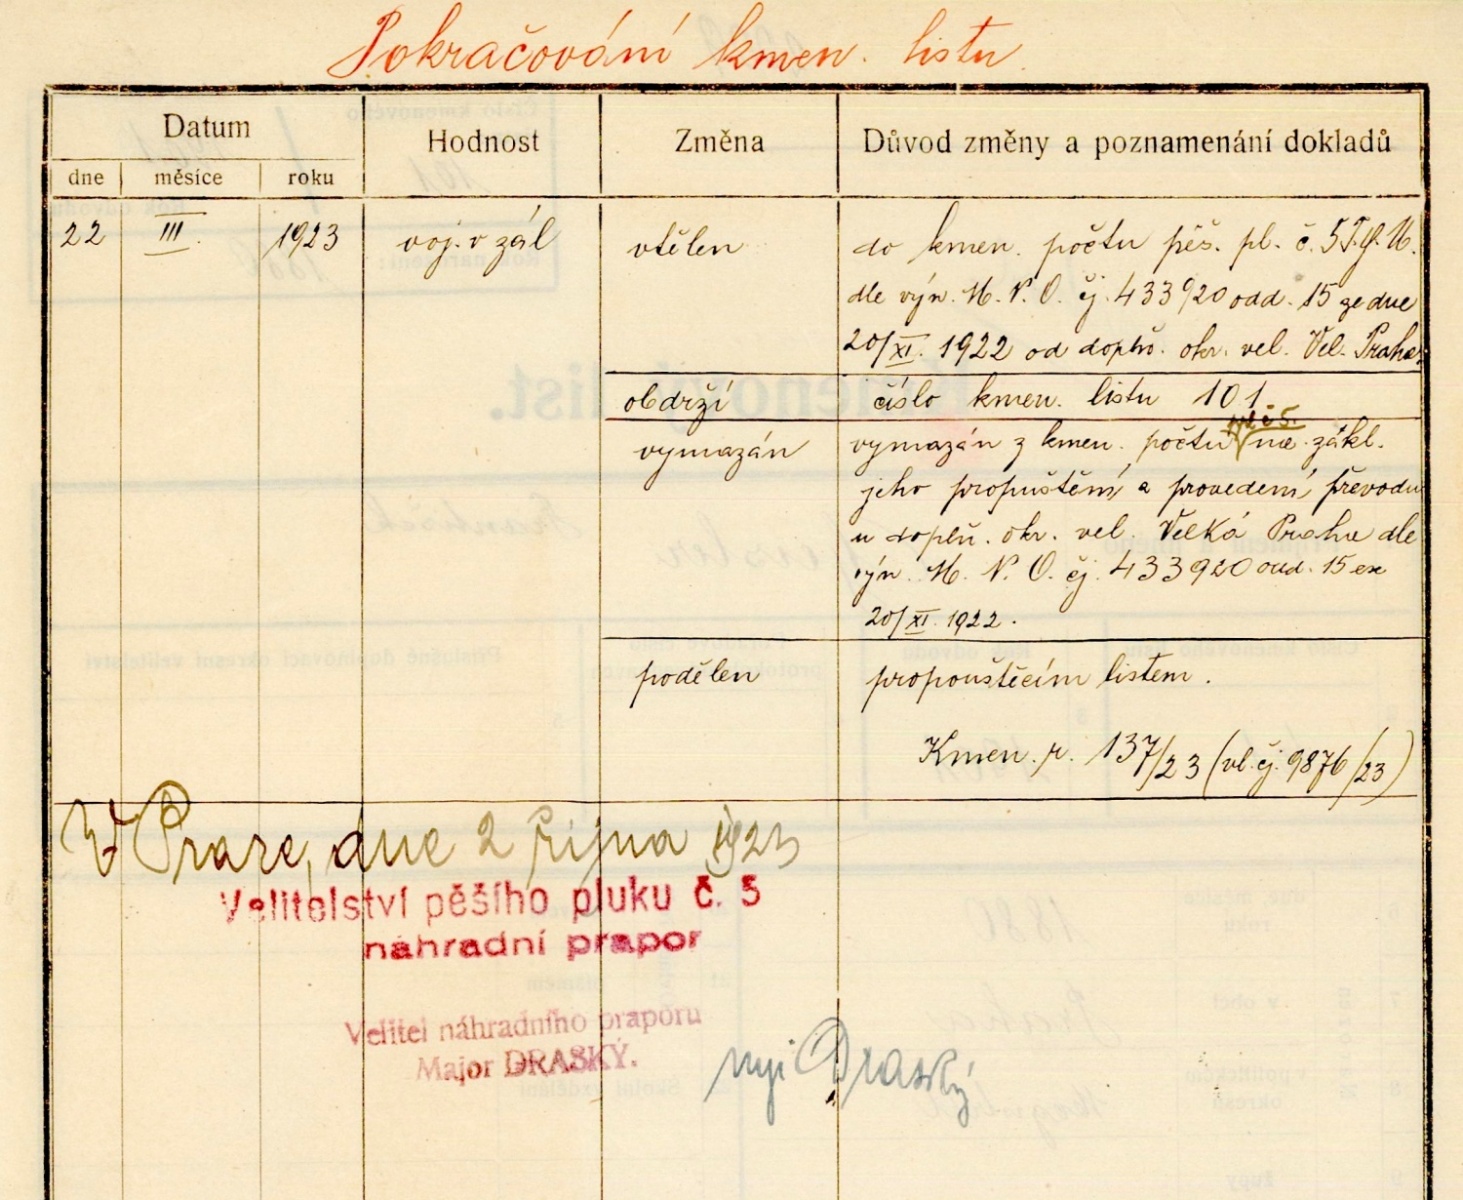 Pokračování kmen. listu
Datum
Hodnost
Změna
Důvod změny a poznamenání dokladů
dne
měsíce
roku
22
III.
1923
voj. v zál
vtělen
do kmen. počtu pěš. pl. č. 5 T.G.M.
dle výn. M. N. O. čj. 433920 odd. 15 ze dne
20/XI. 1922 od dopln. okr. vel. Vel. Praha.
obdrží
číslo kmen. listu 101.
vymazán
vymazán z kmen. počtu na zákl.
jeho propuštění a provedení převodu
u doplň. okr. vel. Velká Praha dle
výn. M. N. O. čj. 433920 odd. 15 ex
20/XI. 1922.
podělen
propouštěcím listem.
Kmen. r. 137/23 (vl. čj. 9876/23)
V Praze, dne 2 října 1923
Velitelství pěšího pluku č. 5
náhradní prapor
Velitel náhradního praporu
Major DRASKÝ.
mjr Draský